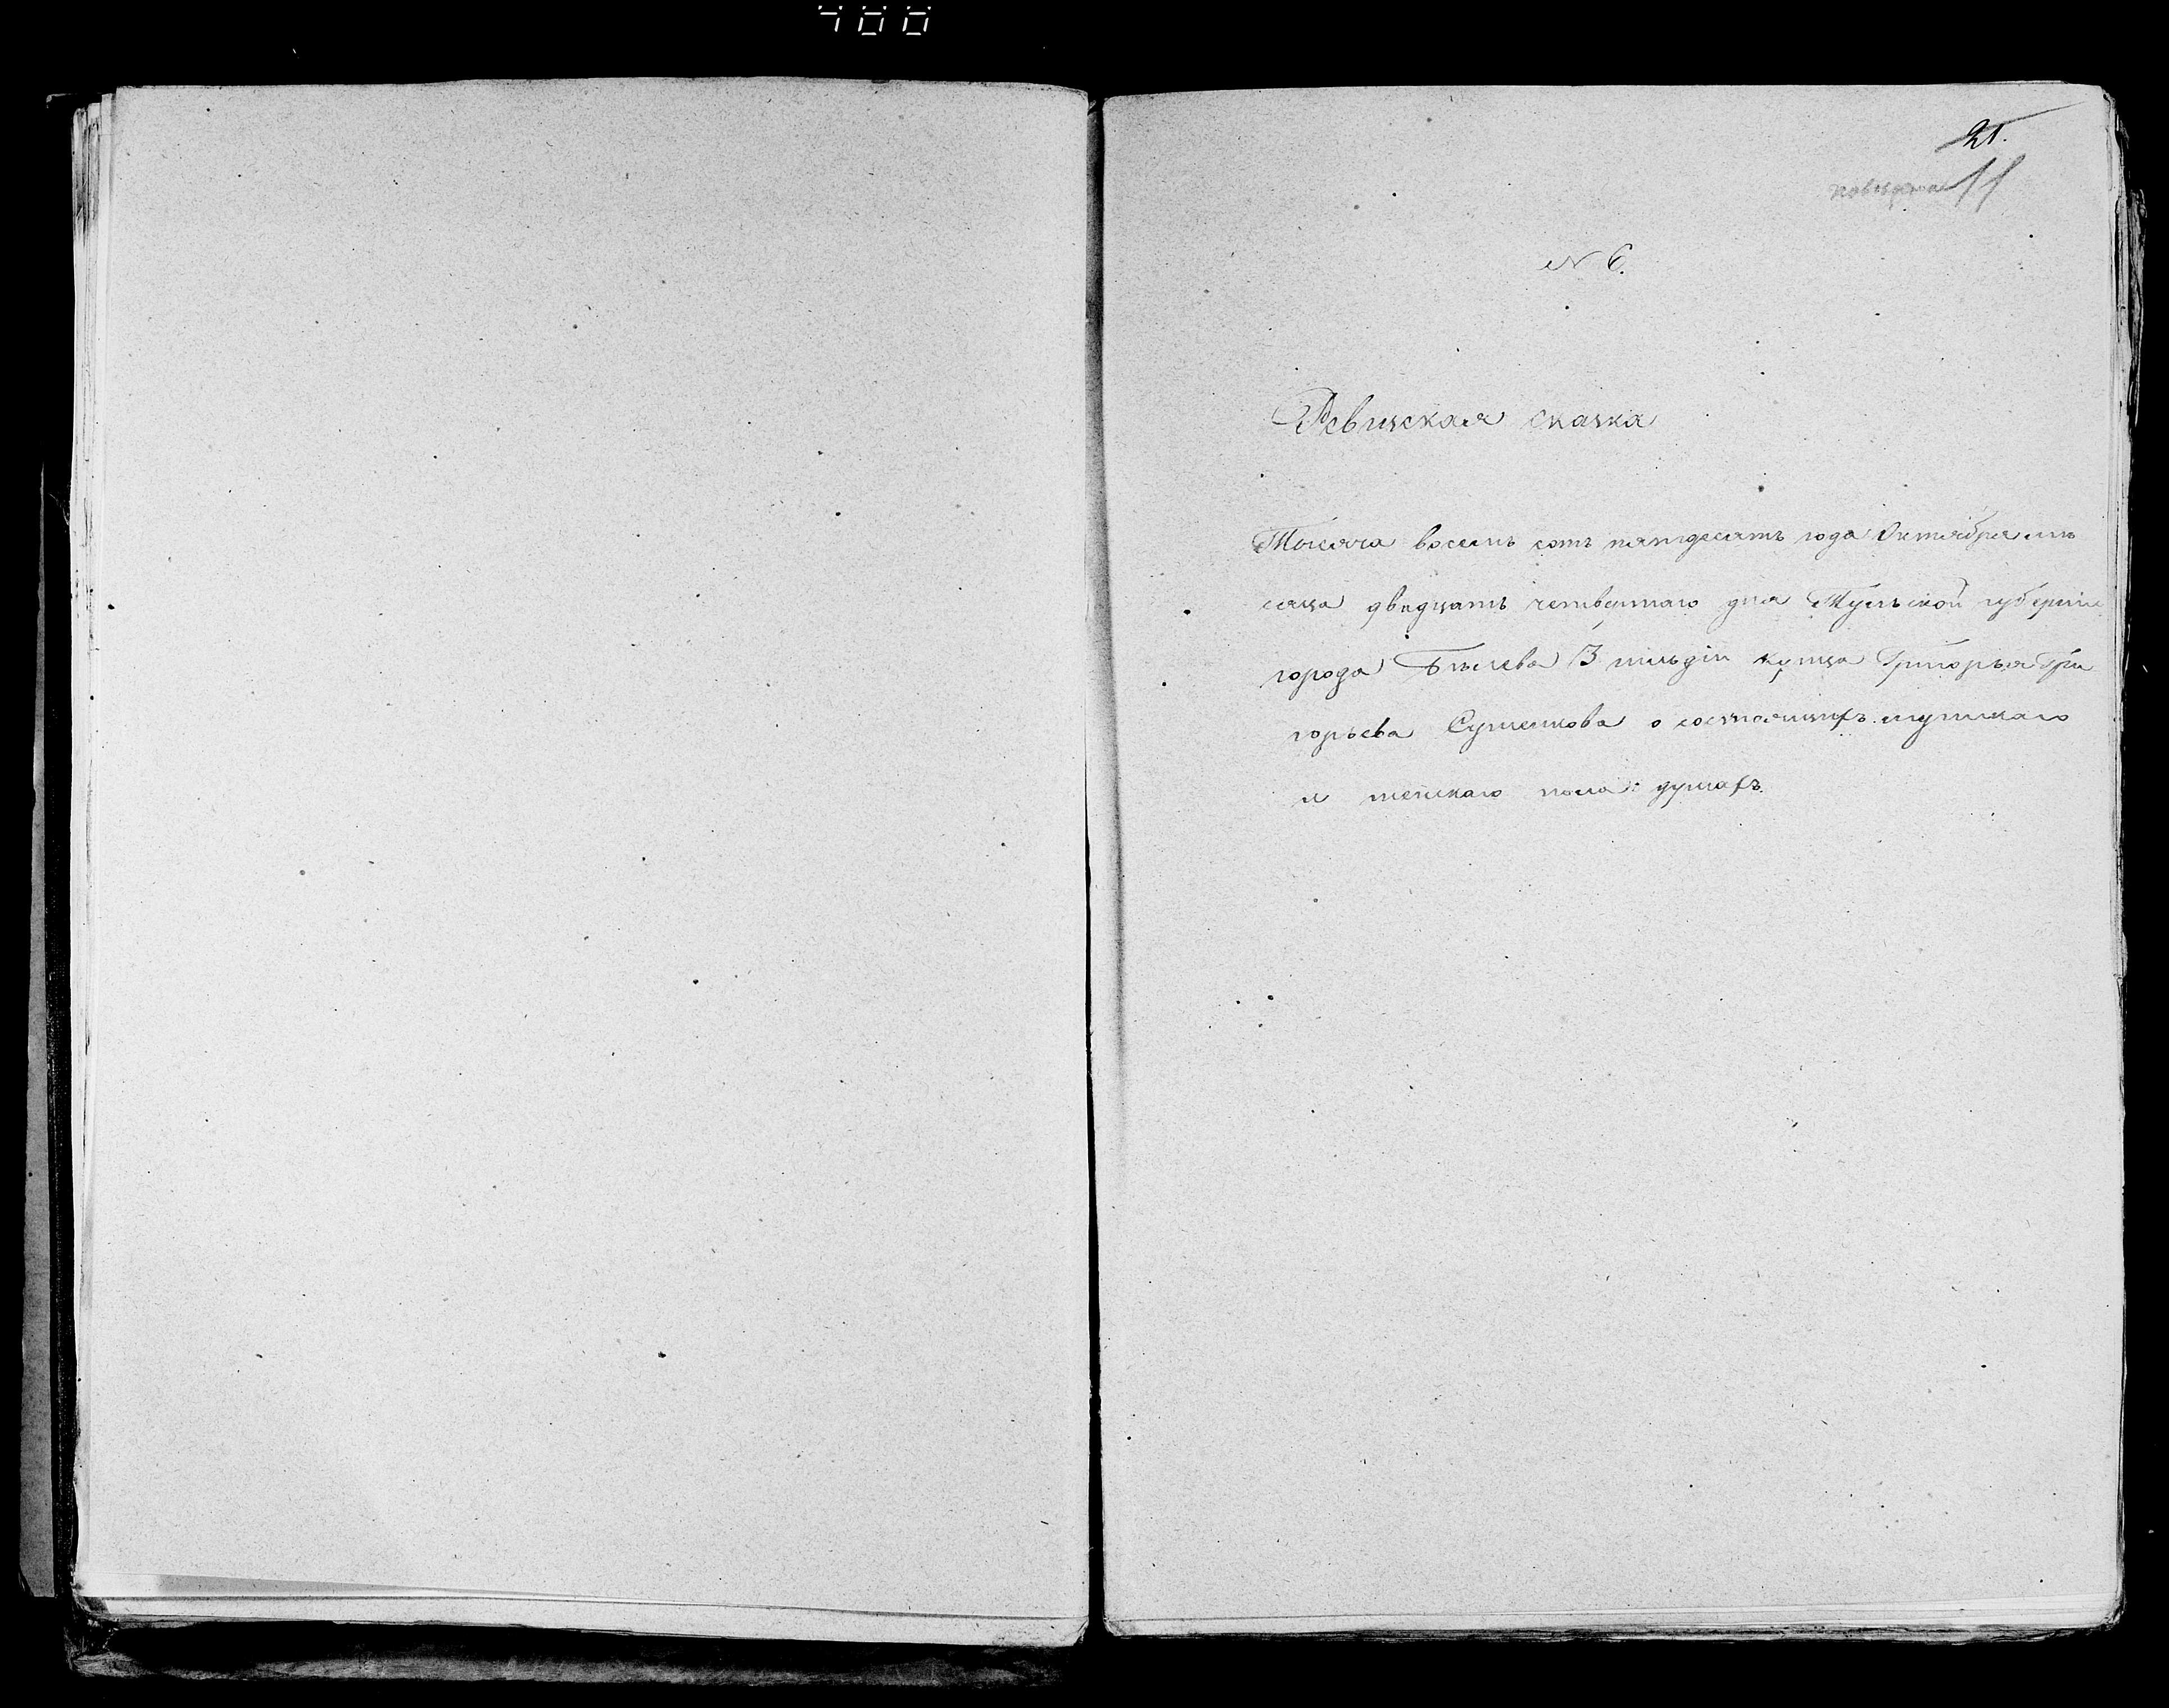 400
21.
11
N 6.
Ревизская сказка
Тысяча восемь сотъ пятдесятъ года Октября мѣ
сяца двадцать четвертаго дня Тульской губерніи
города Бѣлева 3 гильдіи купца Григорья Гри
горьева Сушенкова о состоящихъ мужскаго
и женскаго пола: душахъ.